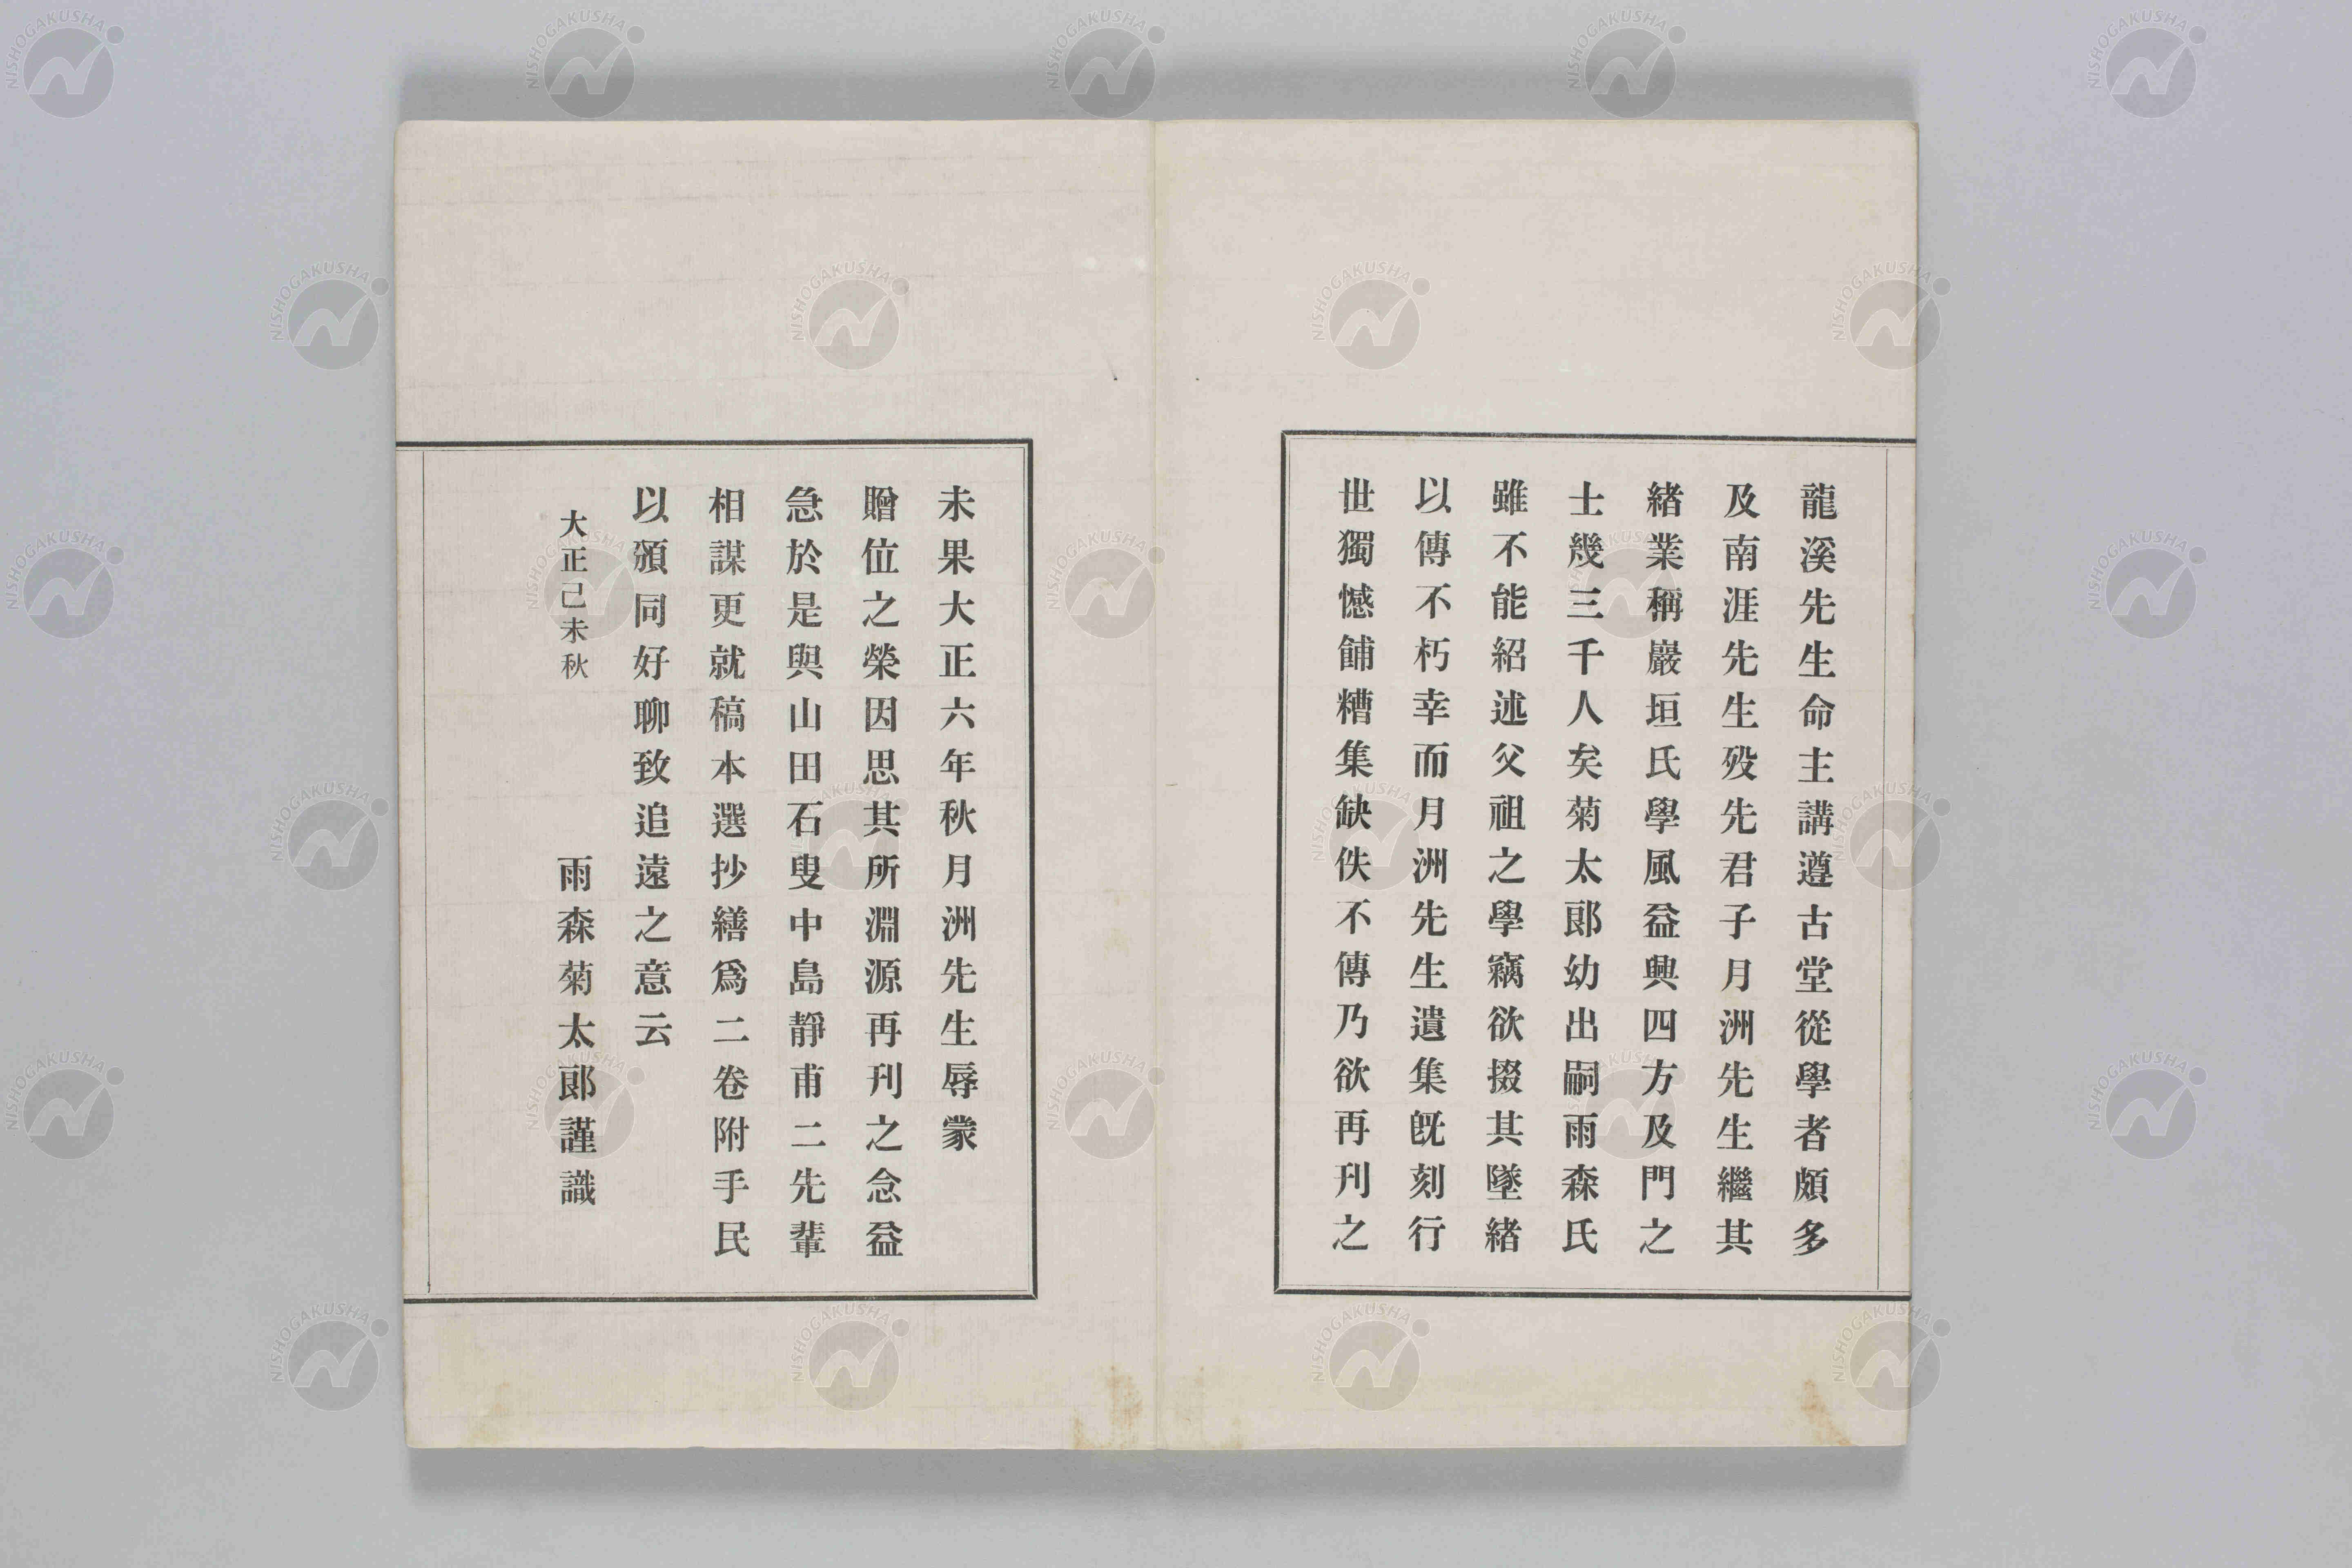 龍溪先生命主講遵古堂從學者頗多
及南涯先生歿先君子月洲先生繼其
緒業稱巖垣氏學風益興四方及門之
士幾三千人矣菊太郎幼出嗣雨森氏
雖不能紹述父祖之學竊欲掇其墜緒
以傳不朽幸而月洲先生遺集既刻行
世獨憾餔糟集缺佚不傳乃欲再刋之
未果大正六年秋月洲先生辱蒙
贈位之榮因思其所淵源再刋之念益
急於是與山田石叟中島靜甫二先輩
相謀更就稿本選抄繕爲二卷附手民
以頒同好聊致追遠之意云
大正己未秋
雨森菊太郎謹識
NISHOGAKUSHA